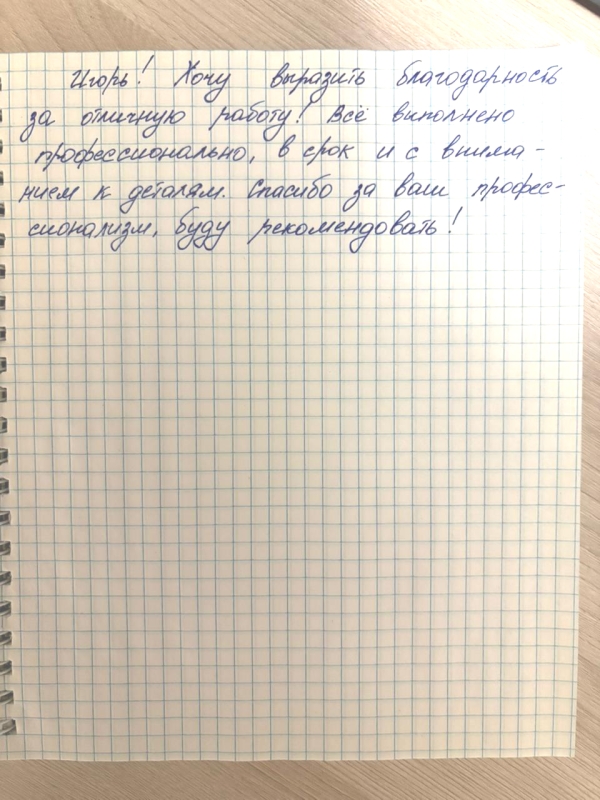 Игорь! Хочу выразить благодарность
за отличную работу! Всё выполнено
профессионально, в срок и с внима-
нием к деталям. Спасибо за ваш профес-
сионализм, буду рекомендовать!